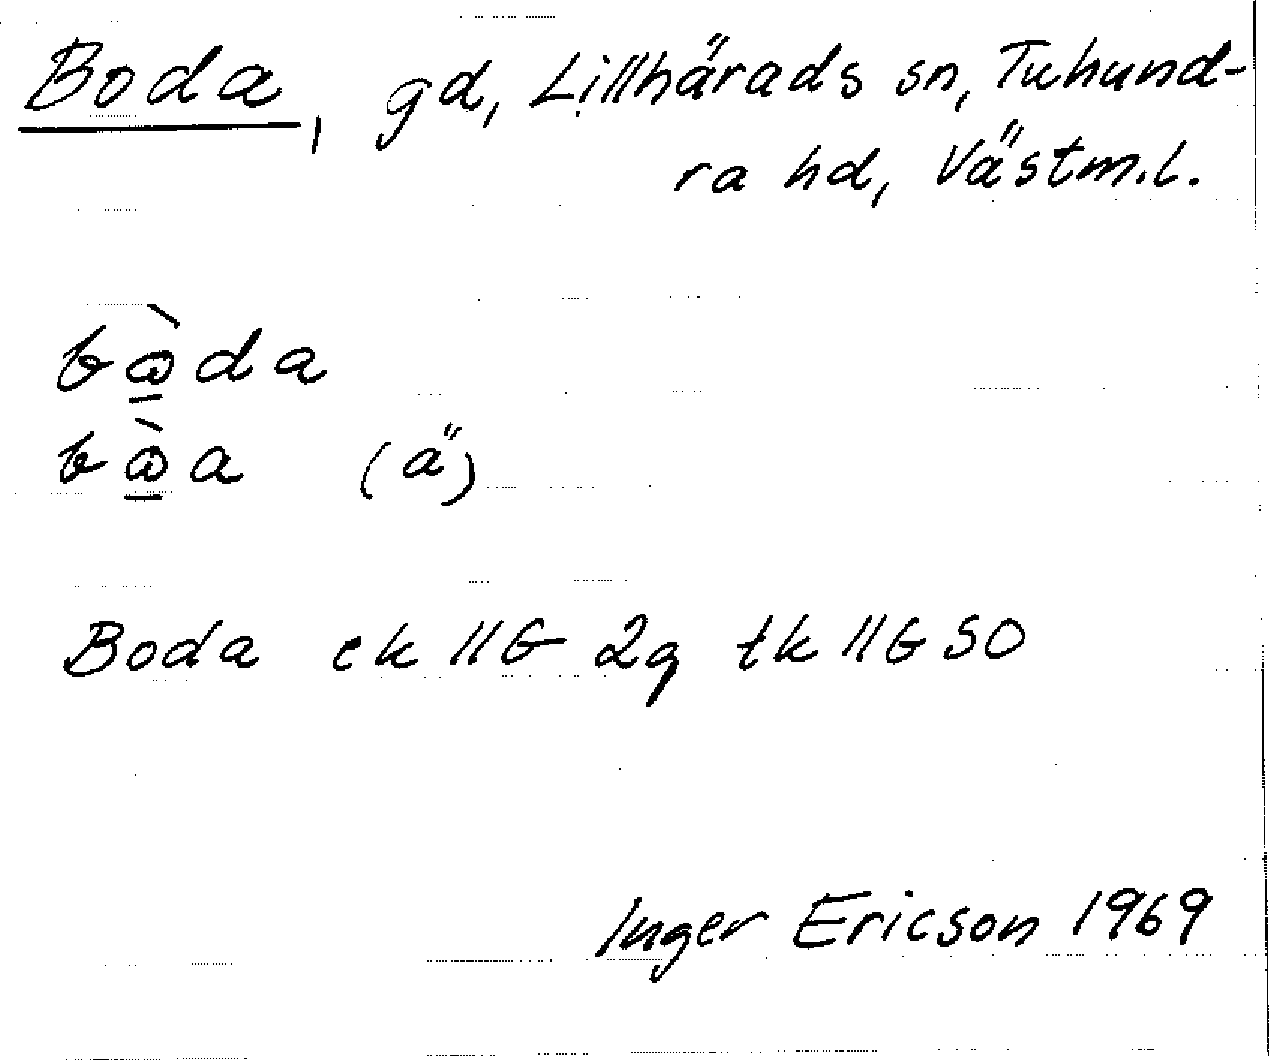 Boda, gd, Lillhärads sn, Tuhund-
ra hd, Västm.l.
bὼ̲da
bὼ̲a (ä)
Boda ek 11G 2g tk 11G SO
Inger Ericson 1969